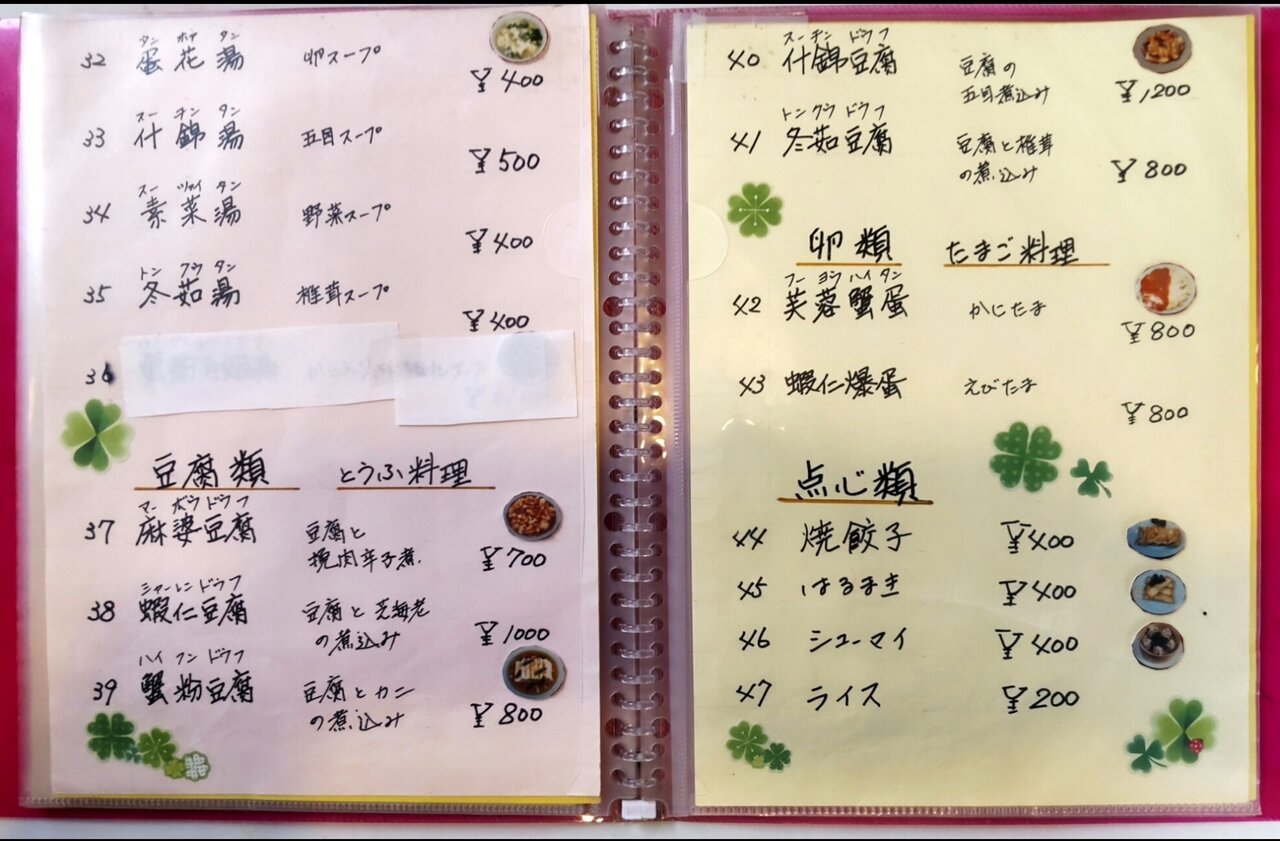 タン ホア タン
32 蛋花湯 卵スープ ¥400
スー チン タン
33 什錦湯 五目スープ ¥500
スー ツァイ タン
34 素菜湯 野菜スープ ¥400
トン フウ タン
35 冬茹湯 椎茸スープ ¥400
36
豆腐類 とうふ料理
マー ボウ ドウフ
37 麻婆豆腐 豆腐と
挽肉辛子煮. ¥700
シャーレン ドウフ
38 蝦仁豆腐 豆腐と芝海老
の煮込み ¥1000
ハイ フン ドウフ
39 蟹粉豆腐 豆腐とカニ
の煮込み ¥800
スー チン ドウフ
40 什錦豆腐 豆腐の
五目煮込み ¥1200
トン クウ ドウフ
41 冬茹豆腐 豆腐と椎茸
の煮込み ¥800
卵類 たまご料理
フー ヨウ ハイ タン
42 芙蓉蟹蛋 かにたま ¥800
43 蝦仁爆蛋 えびたま ¥800
点心類
44 焼餃子 ¥400
45 はるまき ¥400
46 シューマイ ¥400
47 ライス ¥200